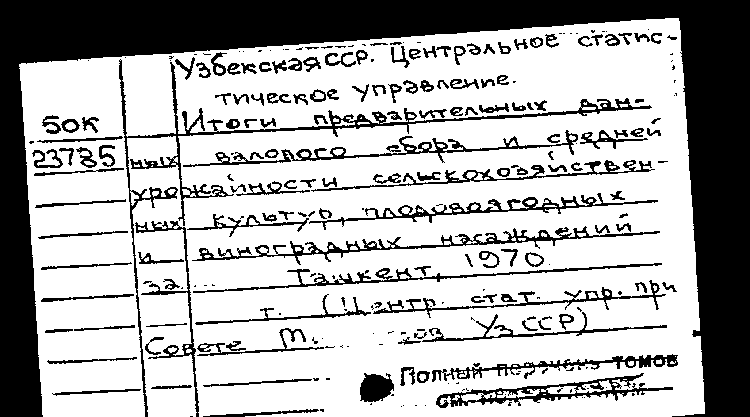 Узбекская ССР. Центральное статис-
тическое управление.
50к Итоги предварительных дан-
23785 ных валового сбора и средней
урожайности сельскохозяйствен-
ных культур, плодовоягодных
и виноградных насаждений
за Ташкент, 1970
т. (Центр. стат. упр. при
Совете М. ов УзССР)
Полный перечень томов
см.